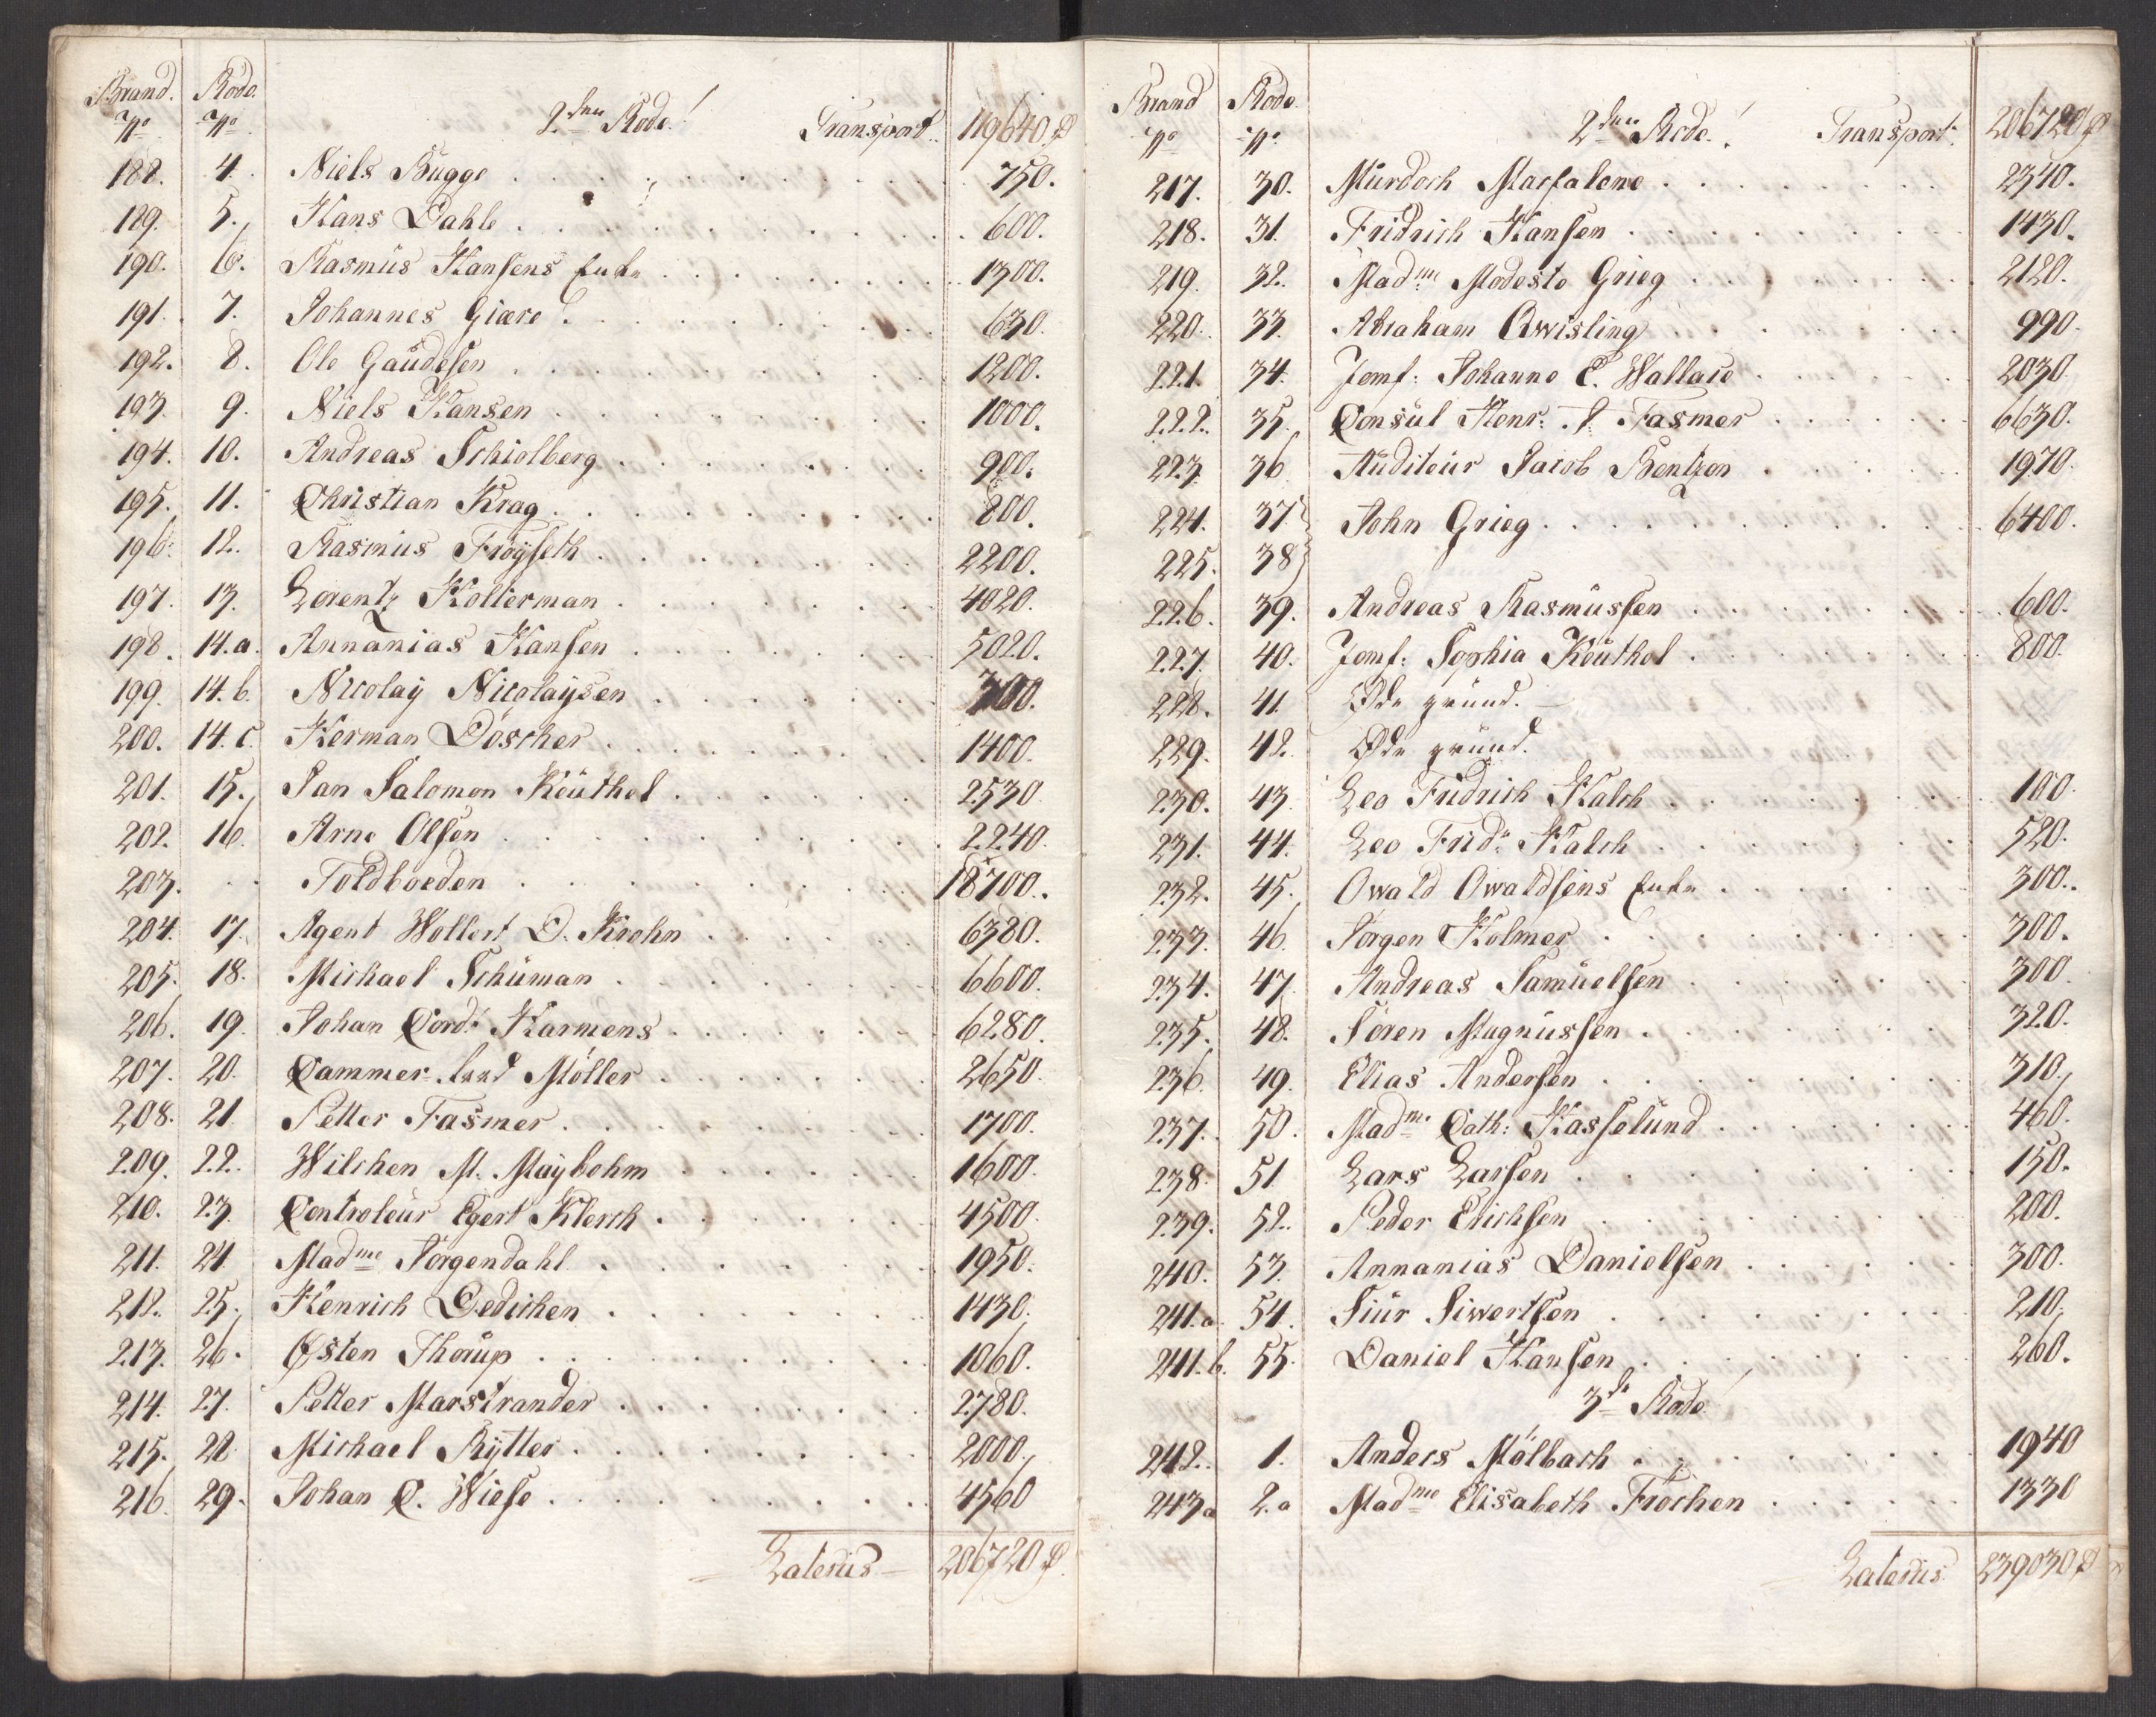 Brand. Rode.
No No 2den Rode! Transport. 119640.
188. 4. Niels Bugge 750.
189. 5. Hans Dahle 600.
190. 6. Rasmus Hansens Enke 1300.
191. 7. Johannes Giære 630.
192. 8. Ole Gaudesen 1200.
193. 9. Niels Hansen 1000.
194. 10. Andreas Schiolberg 900.
195. 11. Christian Krag 800.
196. 12. Rasmus Frøyseth 2200.
197. 13. Lorentz Holterman 4020.
198. 14.a. Annanias Hansen 5020.
199. 14.b. Nicolay Nicolaysen 300.
200. 14.c. Herman Döscher 1400.
201. 15. Jan Salomon Keuthel 2530
202. 16. Arne Olsen 2240.
203. Toldboeden 18700.
204. 17. Agent Wollert D. Krohn 6380.
205. 18. Michael Schuman 6600.
206. 19. Johan Cord: Harmens 6280.
207. 20. Cammer Møller 2650.
208. 21 Petter Fasmer 1700.
209. 22. Wilchen M. Maybohm 1600.
210. 23. Controleur Egert Klerch 4500.
211. 24 Madme Jørgendahl 1950.
212. 25. Henrich Dedichen 1430.
213. 26. Østen Thorup 1060.
214. 27. Petter Marstrander 2780.
215. 28 Michael Rytter 2000.
216. 29. Johan C. Wiese 4560
Laterus 206720

Brand Rode.
No No 2den Rode! Transport. 206720
217. 30. Murdoch Macfalene 2340.
218. 31. Fridrich Hansen 1430.
219. 32. Madme Modeste Grieg 2120.
220. 33. Abraham Qwisling 990.
221. 34. Jomf: Johanne E. Wallace 2030.
222. 35. Consul Henr: J. Fasmer 6630.
223. 36 Auditeur Jacob Bentzon 1970.
224. 37 John Grieg 6400.
225. 38
226. 39. Andreas Rasmussen 600.
227. 40. Jomf: Sophia Keuthel 800.
228. 41. Øde grund.
229. 42. Øde grund.
230. 43. Leo Fridrich Kalch 100.
231. 44. Leo Frid: Kalch 520.
232. 45. Owald Owaldsens Enke 300.
233. 46. Jørgen Holmer 300.
234. 47. Andreas Samuelsen 300.
235. 48. Søren Magnussen 320.
236. 49. Elias Andersen 310.
237. 50. Madme Cath: Hasselund 460.
238. 51 Lars Larsen 150.
239. 52. Peder Erichsen 200.
240. 53. Annanias Danielsen 300.
241.a. 54. Siur Siwertsen 210.
241.b. 55. Daniel Hansen 260.
3de Rode
242. 1. Anders Mølbach 1940
243a 2.a Madme Elisabeth Frøchen 1330
Laterus 239030